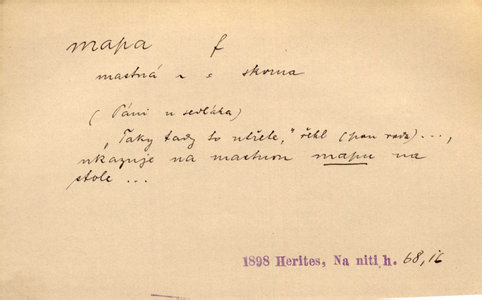 mapa f
mastná ~ = skvrna
(Páni u sedláka)
„Taky tady to utřete," řekl (pan rada) ...,
ukazuje na mastnou mapu na
stole ...
1898 Herites, Na niti h. 68,